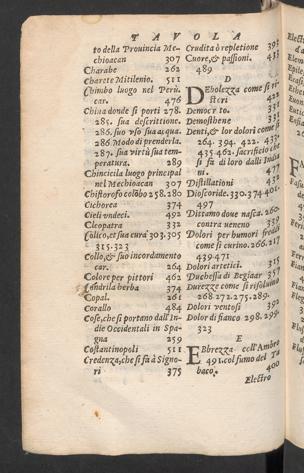 TAVOLA
to della Prouincia Me-
chioacan 307
Charabe 262
Charete Mitilenio. 511
Chimbo luogo nel Perù.
car. 476
China donde si porti 278.
285. sua descrittione.
286. suo vso sua acqua.
286. Modo di prenderla.
287. sua virtù sua tem-
peratura. 289
Chincicila luogo principal
nel Mechioacan 307
Chistorofolo colōbo 258.280
Cichorea 374
Cieli vndeci. 492
Cleopatra 332
Colico, et sua cura 303.305
315.323
Collo, & suo incordamento
car. 264
Colore per pittori 462
Condrila herba 374
Copal. 261
Corallo 484
Cose, che si portano dall'In-
die Occidentali in Spa-
gna 259
Costantinopoli 511
Credenza, che si fà à Signo-
ri 375
Crudità ò repletione 395
Cuore, & passioni. 433
489
D
Debolezza come si ri-
stori 422
Democrito. 331
Demosthene 331
Denti, & lor dolori come si
264. 394. 422. 433.
435. 462. sacrificio che
si fà di loro dalli India
ni. 477
Distillationi 432
Dioscoride. 330.374 401.
497
Dittamo doue nasca. 260.
contra ueneno 339
Dolori per humori freddi
come si curino. 266.217
439 471
Dolori artetici. 315
Duchessa di Begiaar 357
Durezze come si risoluino
268. 272. 275. 289.
Dolori ventosi 392
Dolor di fianco 298. 299.
323
E
Ebbrezza coll'Ambro
491. col fumo del Ta
baco. 400
Electro